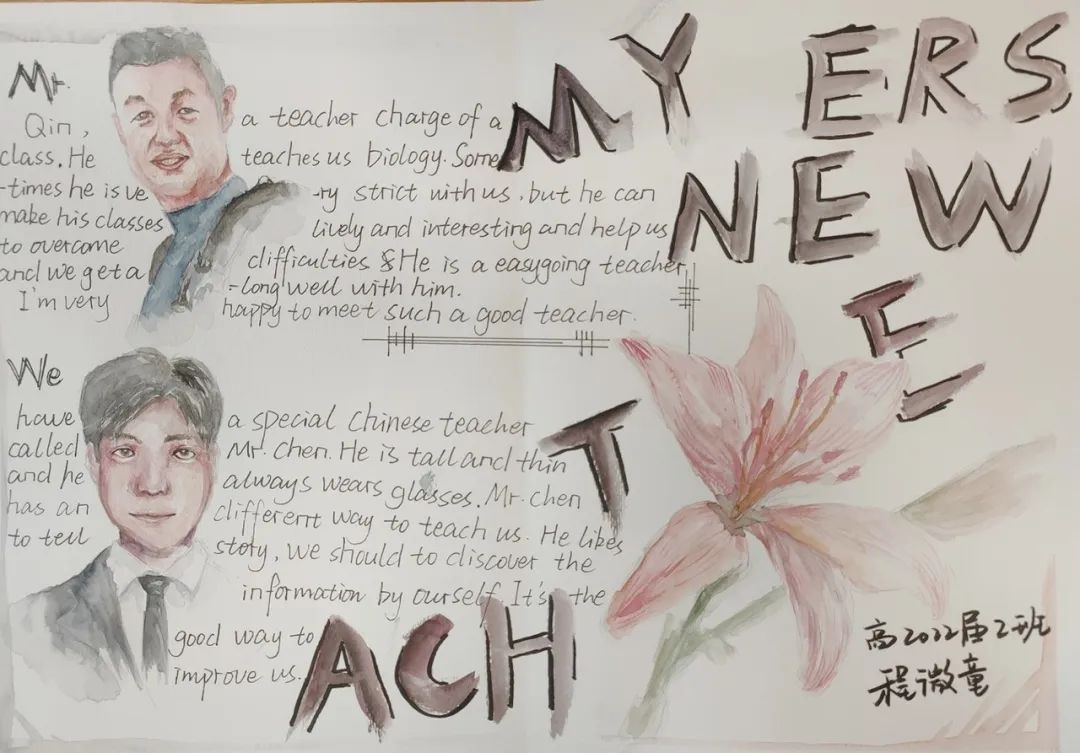 MY NEW TEACHERS
Mr.
Qin, a teacher charge of a
class. He teaches us biology. Some
-times he is ve -ry strict with us, but he can
make his classes lively and interesting and help us
to overcome difficulties & He is a easygoing teacher,
and we get a -long well with him.
I'm very happy to meet such a good teacher.
We
have a special Chinese teacher
called Mr. Chen. He is tall and thin
and he always wears glasses. Mr. chen
has an different way to teach us. He likes
to tell story, we should to discover the
information by ourself. It's the
good way to
improve us.
高2022届2班
程微童